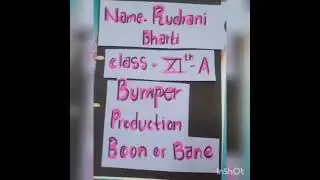 Name- Rudrani
Bharti
class - XIth-A
Bumper
Production
Boon or Bane
InShOt